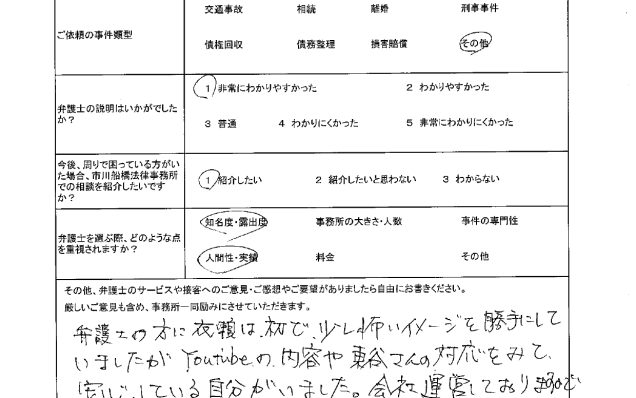 交通事故 相続 離婚 刑事事件
ご依頼の事件類型
債権回収 債務整理 損害賠償 その他
1 非常にわかりやすかった 2 わかりやすかった
弁護士の説明はいかがでした
か?
3 普通 4 わかりにくかった 5 非常にわかりにくかった
今後、周りで困っている方がい
た場合、市川船橋法律事務所
での相談を紹介したいです
か?
1 紹介したい 2 紹介したいと思わない 3 わからない
知名度・露出度 事務所の大きさ・人数 事件の専門性
弁護士を選ぶ際、どのような点
を重視されますか?
人間性・実績 料金 その他
その他、弁護士のサービスや接客へのご意見・ご感想やご要望がありましたら自由にお書きください。
厳しいご意見も含め、事務所一同励みにさせていただきます。
弁護士の方に衣頼は、初で、少し怖いイメージを勝手にして
いましたが Youtubeの、内容や さんの対応をみて、
している自分がいました。会社運営しております